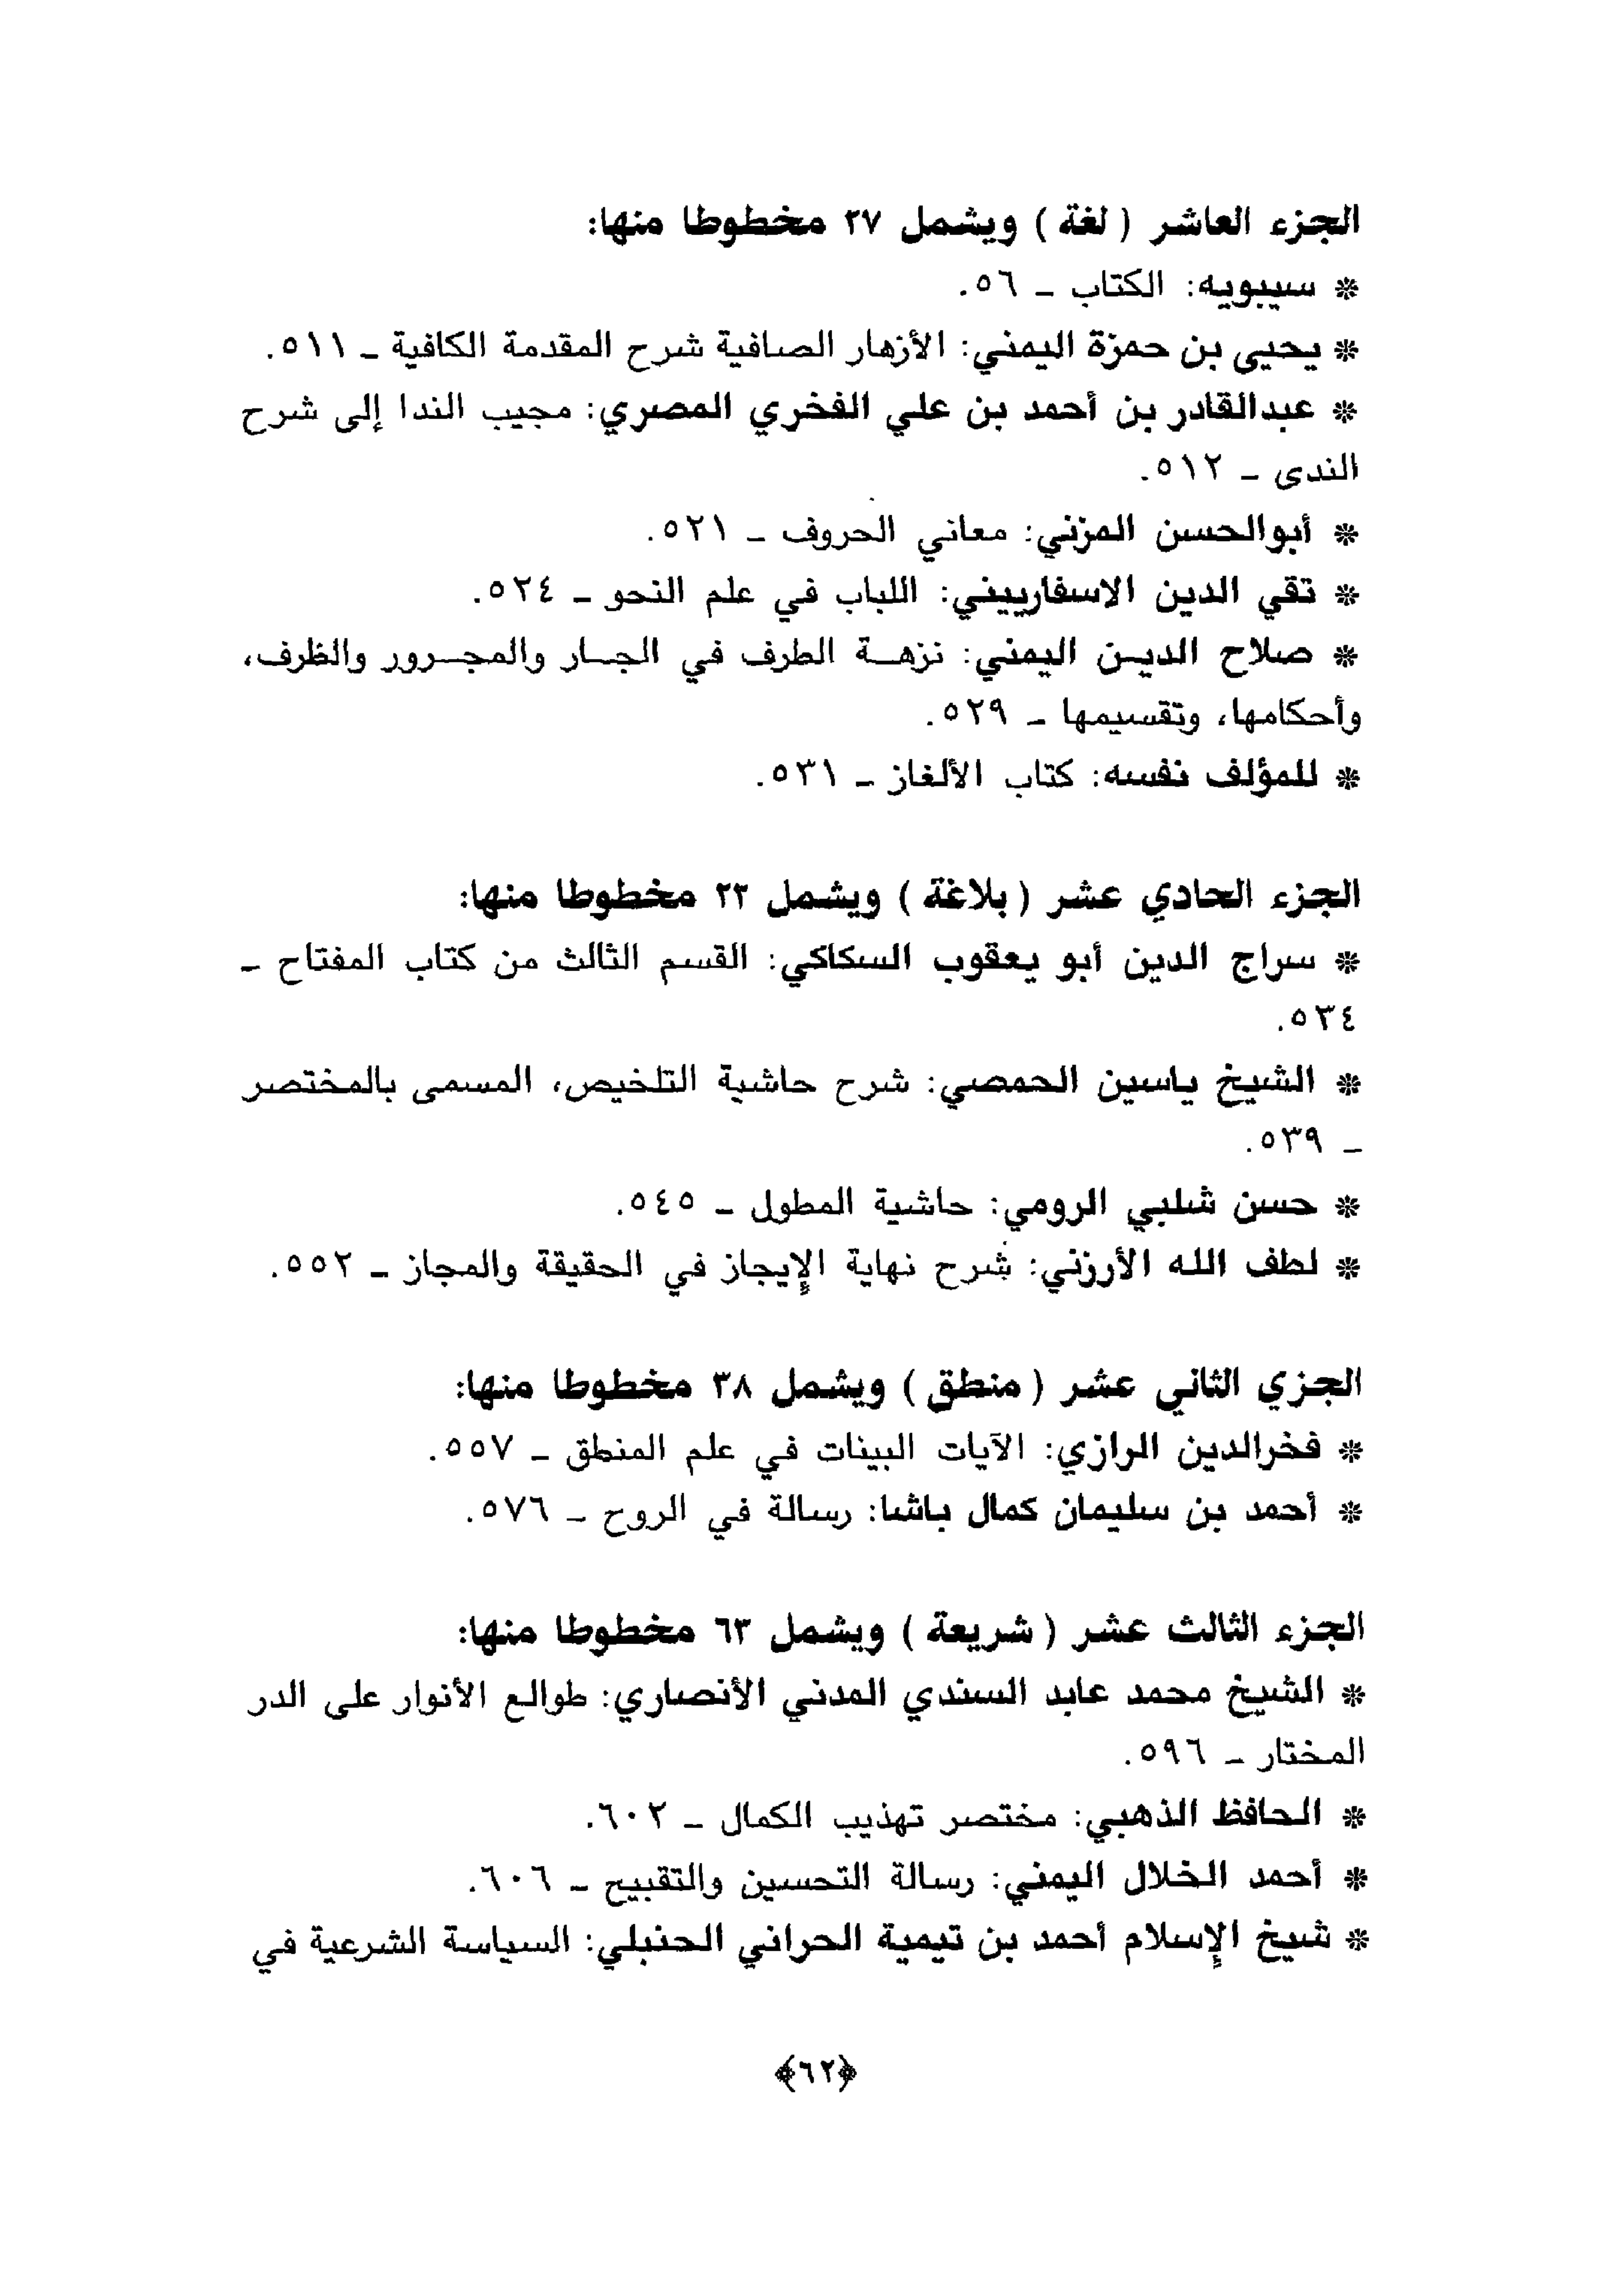 الجزء العاشر ( لغة ) ويشمل ٢٧ مخطوطا منها:
* سيبويه: الكتاب ـ ٥٦.
* يحيى بن حمزة اليمني: الأزهار الصافية شرح المقدمة الكافية ـ ٥١١.
* عبدالقادر بن أحمد بن علي الفخري المصري: مجيب الندا إلى شرح
الندى ـ ٥١٢.
* أبوالحسن المزني: معاني الحروف ـ ٥٢١.
* تقي الدين الاسفاراييني: اللباب في علم النحو ـ ٥٢٤.
* صلاح الديـن اليمني: نزهـة الطرف في الجـار والمجـرور والظرف،
وأحكامها، وتقسيمها ـ ٥٢٩.
* للمؤلف نفسه: كتاب الألغاز ـ ٥٣١.
الجزء الحادي عشر ( بلاغة ) ويشمل ٢٣ مخطوطا منها:
* سراج الدين أبو يعقوب السكاكي: القسم الثالث من كتاب المفتاح ـ
٥٣٤.
* الشيخ ياسين الحمصي: شرح حاشية التلخيص، المسمى بالمختصر
ـ ٥٣٩.
* حسن شلبي الرومي: حاشية المطول ـ ٥٤٥.
* لطف الله الأرزني: شرح نهاية الإيجاز في الحقيقة والمجاز ـ ٥٥٢.
الجزي الثاني عشر ( منطق ) ويشمل ٣٨ مخطوطا منها:
* فخرالدين الرازي: الآيات البينات في علم المنطق ـ ٥٥٧.
* أحمد بن سليمان كمال باشا: رسالة في الروح ـ ٥٧٦.
الجزء الثالث عشر ( شريعة ) ويشمل ٦٣ مخطوطا منها:
* الشيخ محمد عابد السندي المدني الأنصاري: طوالع الأنوار على الدر
المختار ـ ٥٩٦.
* الحافظ الذهبي: مختصر تهذيب الكمال ـ ٦٠٢.
* أحمد الخلال اليمني: رسالة التحسين والتقبيح ـ ٦٠٦.
* شيخ الإسلام أحمد بن تيمية الحراني الحنبلي: السياسة الشرعية في
﴿٦٢﴾